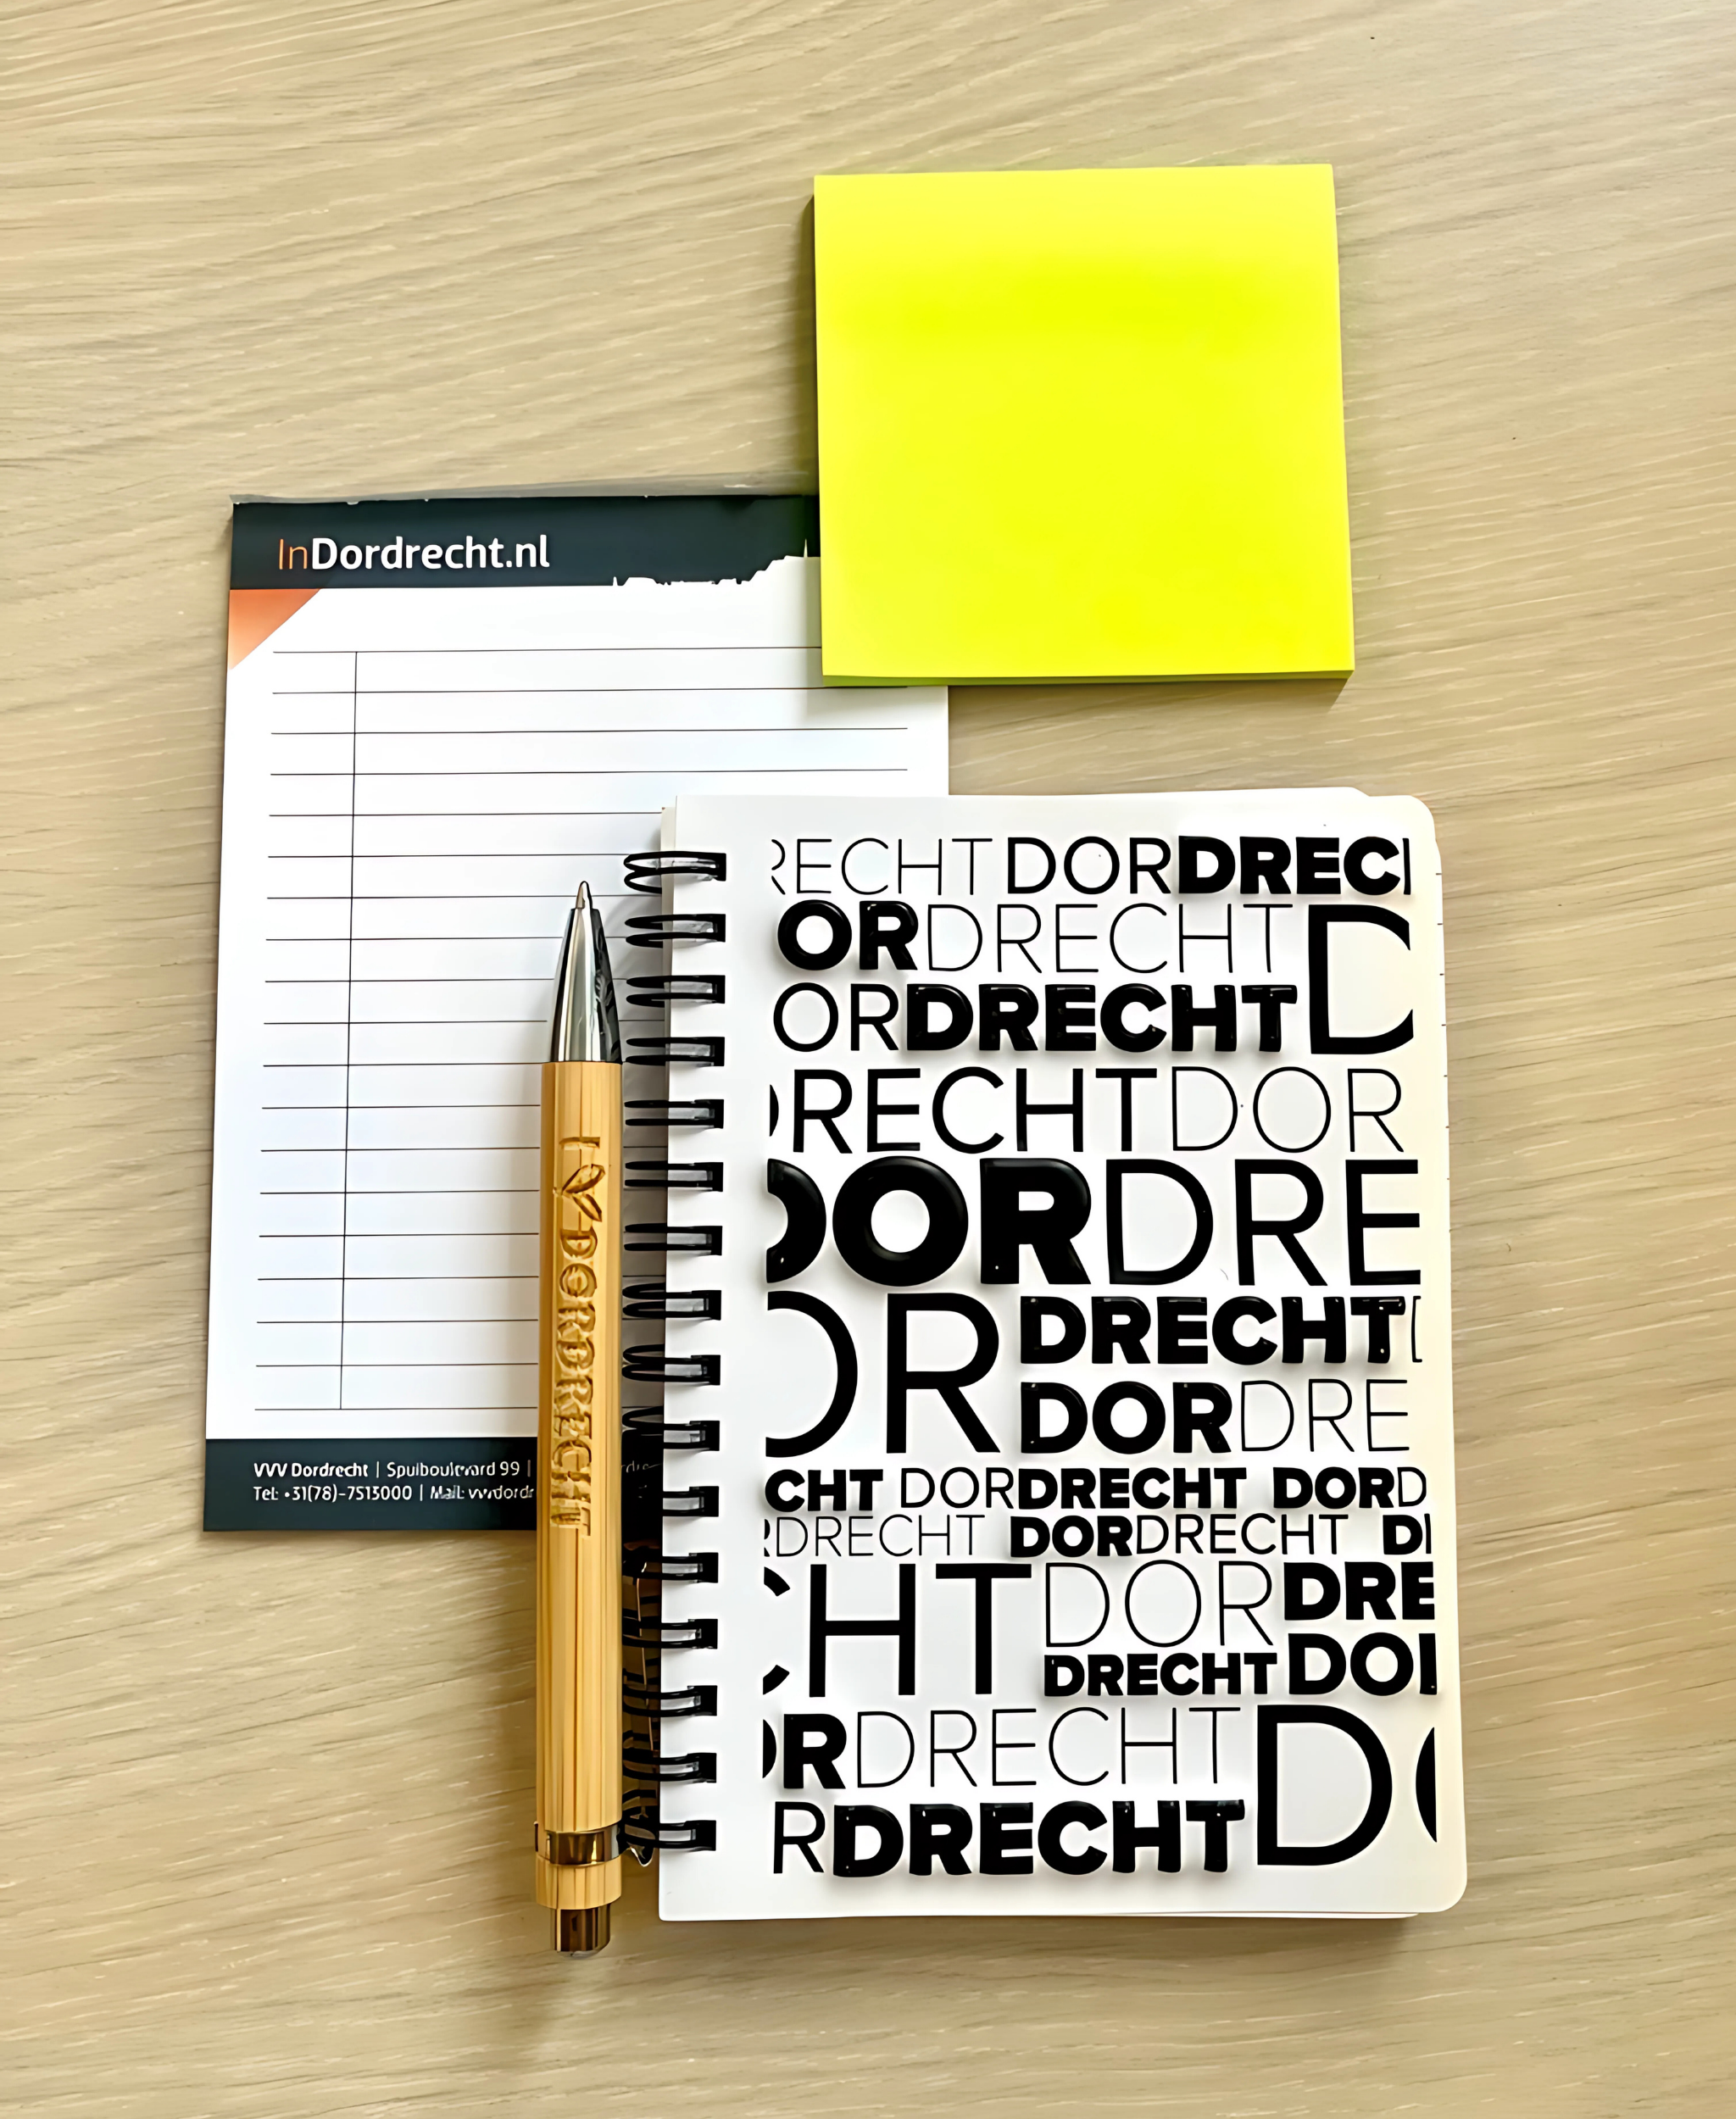 InDordrecht.nl
VVV Dordrecht | Spuiboulevard 99 |
Tel: +31(78)-7513000 | Mail: vvvdordr
I DORDRECHT
RECHT DORDREC
ORDRECHT D
ORDRECHT
DRECHTDOR
DORDRE
OR DRECHT
DORDRE
CHT DORDRECHT DORD
RDRECHT DORDRECHT D
CHT DOR DRE
DRECHT DO
ORDRECHT DO
RDRECHT